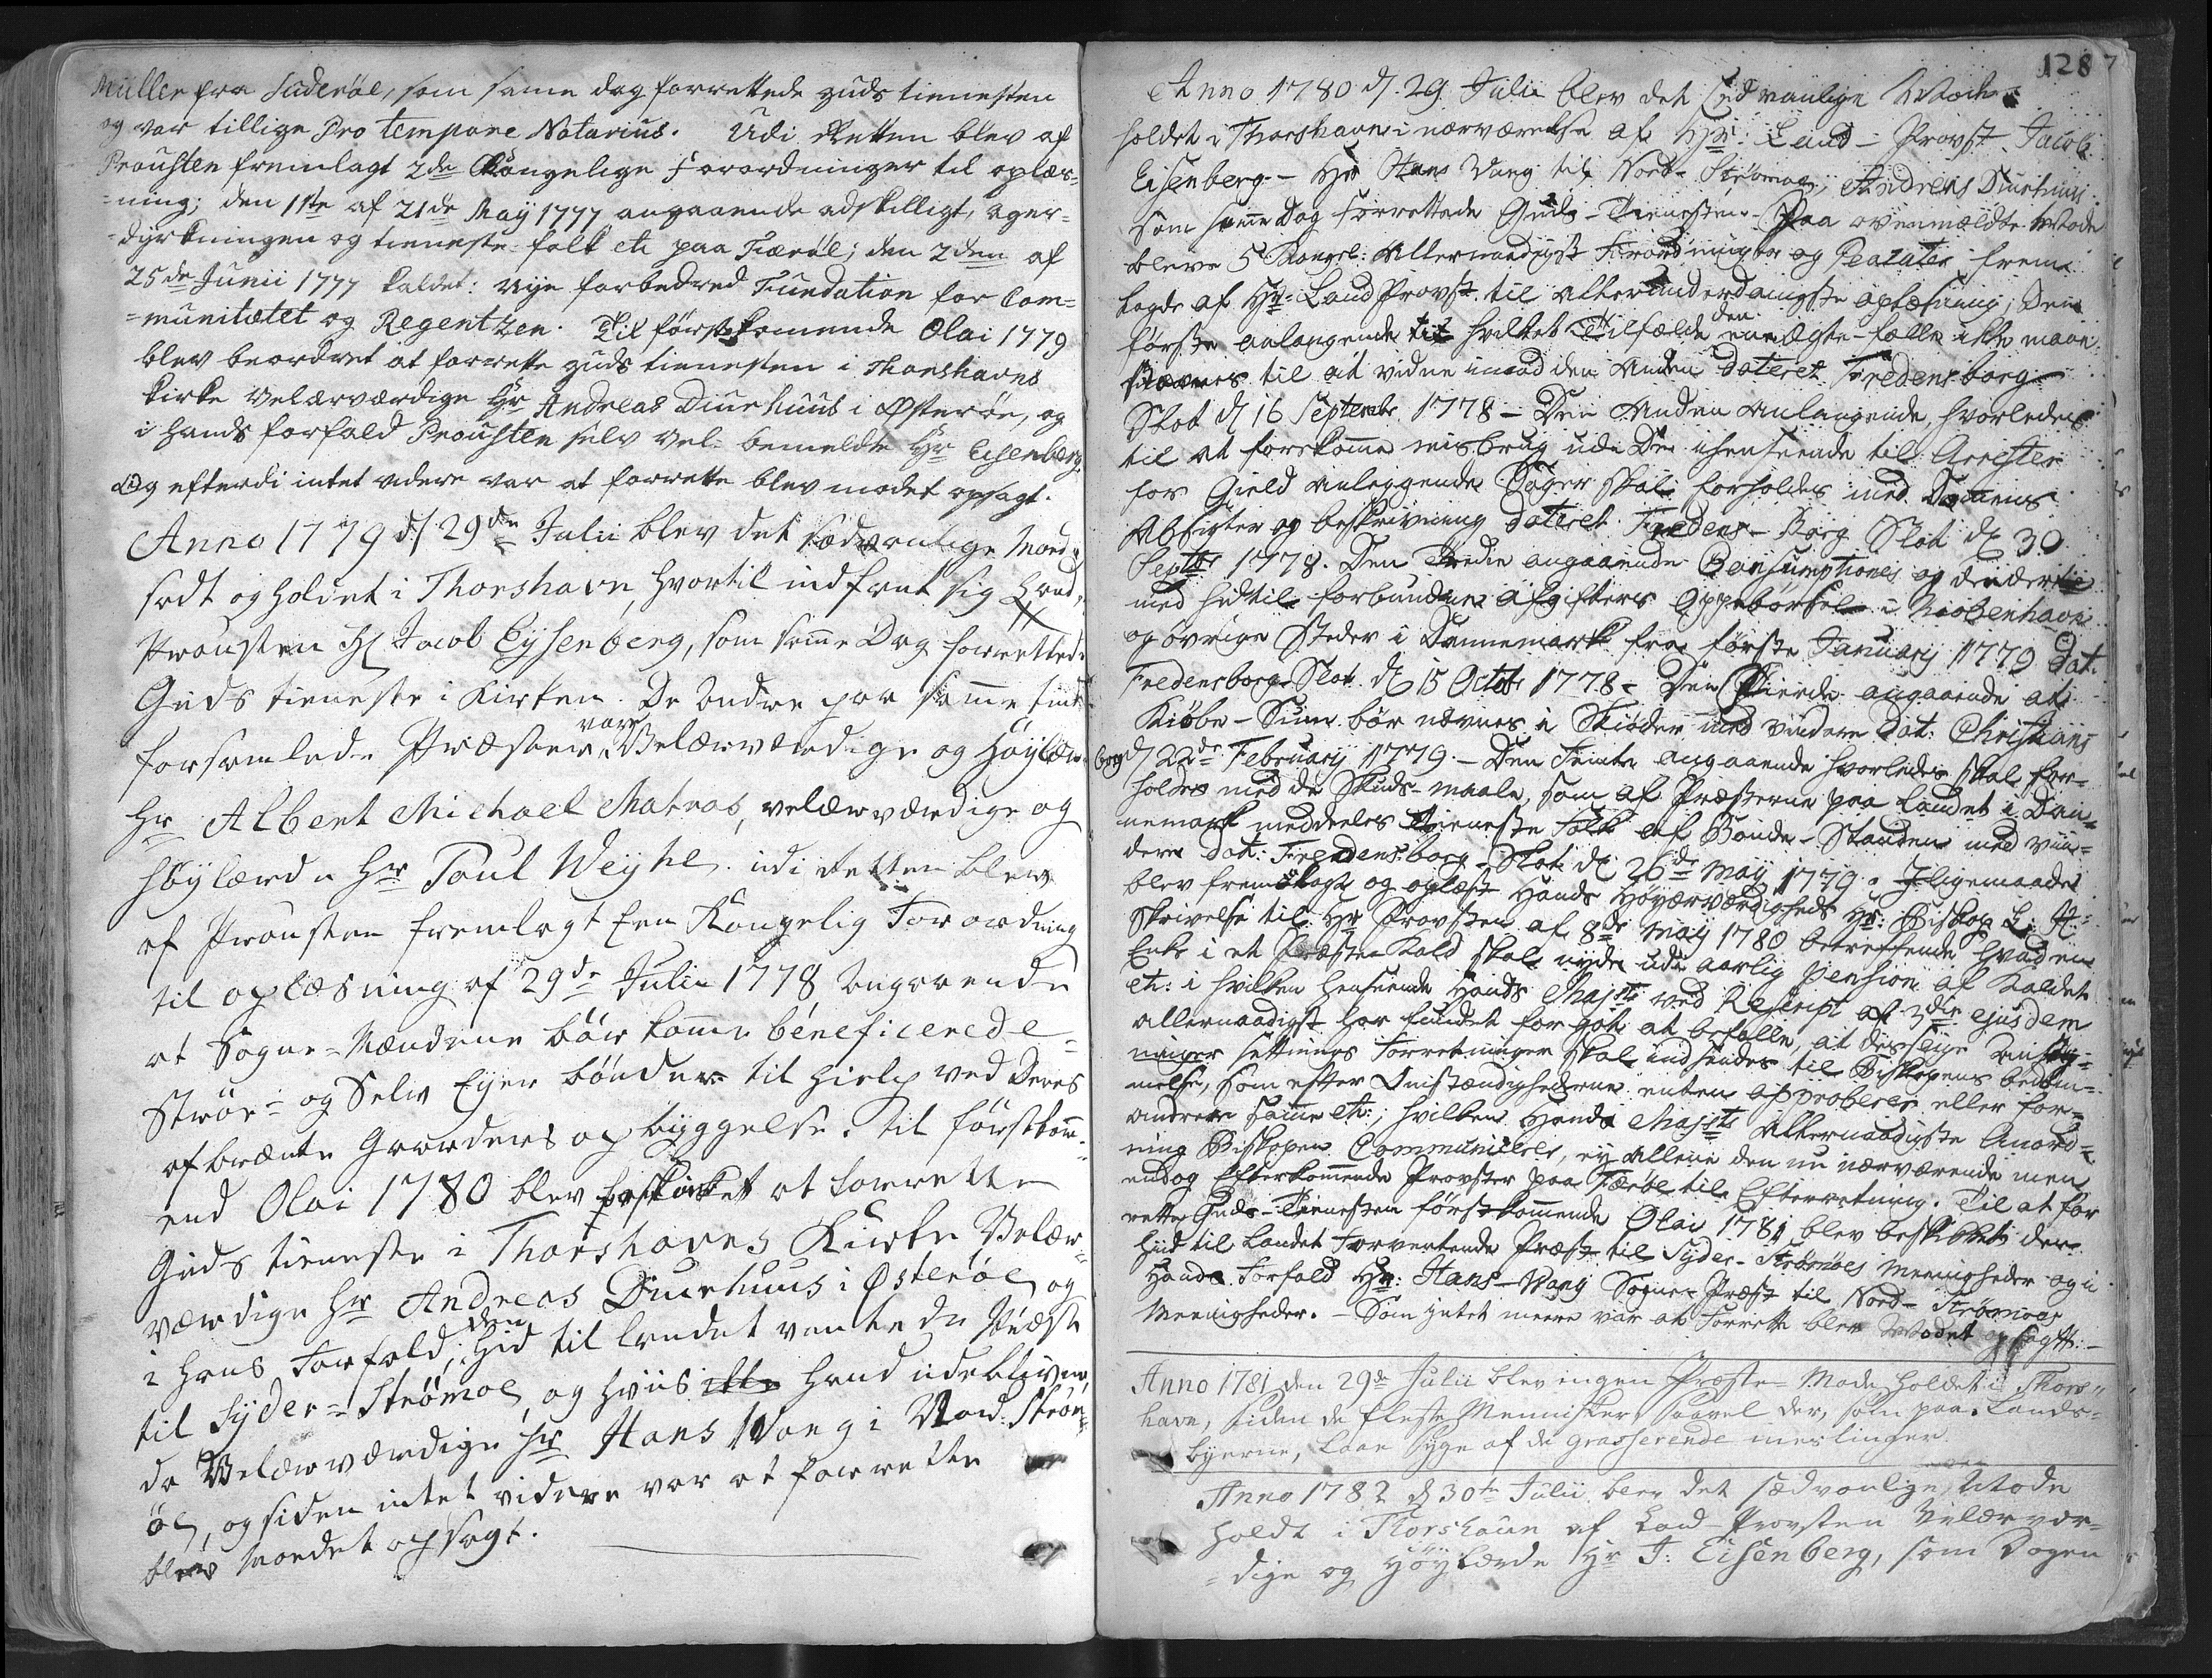 Müller fra Suderöe, som same dag forrettede guds tienesten
og var tillige Pro tempore Notarius. Udi Retten blev af
Prousten fremlagt 2de Kongelige Forordninger til oplæs-
=ning; den 1ste af 21de Maÿ 1777 angaaende adskilligt, ager=
=dyrkningen og tieneste folk etc paa Færöe; den 2den af
25de Junii 1777 kaldet: nye forbedred Fundation for Com=
=munitætet og Regentzen. Til förstkomende Olai 1779
blev beordret at forrette guds tienesten i Thorshavns
kirke Velærværdige Hr Andreas Diurhuus i Österöe, og
i hands forfald Prousten selv Vel: bemeldte Hr Eisenberg.
Og efterdi intet videre var at forrette blev modet opsagt.
Anno 1779 d 29de Julii blev det sædvanlige Moed
sadt og holdet i Thorshavn, hvortil indfant sig Land,
Prousten H. Jacob Eÿsenberg, som same Dag forrettede
Guds tieneste i Kirken. De andre paa same tiid
forsamlede Præster vare Velærværdige og Höÿlær
Hr Albert Michael Matras, velærværdige og
höylærde Hr Poul Weyhe. udi retten blev
af Prousten fremlagt een Kongelig Forordning
til oplæsning af 29de Julii 1778 angaaende
at Sogne=Mændene bör komme beneficerede=
Ströe= og Selv Eÿer bönder til hielp ved Deres
afbrænte Gaarders opbyggelse. til förstkom=
end Olai 1780 blev beskikket at forrette
Guds tieneste i Thorshavns Kirke Velær=
værdige Hr Andreas Diurhuus i Österöe, og
i hans Forfald, den Hid til landet ventede Præst
til Sÿder=Strömoe, og hviis ikke hand udebliver,
da Velærværdige Hr Hans Wang i Nord: Ström=
öe, og siden intet videre var at forrette
blev Moedet opsagt.
128
Anno 1780 d. 29 Julii blev det Sædvanlige Mode
holdet i Thorshavn i nærværelse af Hr: Land-Provst Jacob
Eisenberg- Hr Hans Wang til Nord-Strömoe, Andreas Diurhuus
som same Dag forrettede Guds-Tienesten. Paa ovenmældte Mode
bleve 5 Kongel: Allernaadigst Forordninger og Placater frem=
lagde af Hr: Land Provst til allerunderdanigste oplæsning; Den
förste anlangende til hvilket Tilfælde den eene Ægte-fælle ikke maae
stævnes til at vidne imod den Anden dateret Fredensborg
Slot d 16 Septembr 1778 - Den Anden anlangende, hvorledes
til at forekomme misbrug udi De i henseende til Arrester
for Gield anleggende Sager skal forholdes med Dommens
Afsigter og beskrivning dateret Fredens-Borg Slot d. 30
Septbr 1778. Den Tredie angaaende Consumptiones og de dertil
med hidtil forbundne Afgifters Oppebörsel i Kiöbenhavn
og övrige Steder i Dannemark fra förste Januarij 1779 Dat.
Fredensborg Slot d. 15 Octobr 1778. Den Fierde angaaende at
Kiöbe-Sum bör nævnes i Skiöder med videre Dat: Christians
borg d 22de Februarij 1779. - Den Femte angaaende hvorledes skal for=
holdes med de Skuds-maale, som af Præsterne paa Landet i Dan=
nemark meddeeles Tieneste Folk af Bonde-Standen med vii=
dere dat: Fredensborg Slot d. 26de Maÿ 1779. Iligemaade
blev fremlagt og oplæst Hands Höyærværdigheds Hr: Biskop L: H:
Skrivelse til Hr Provsten af 8de Maÿ 1780 betreffende hvad en
Enke i et Præste Kald skal nyde udi aarlig Pension af Kaldet
etc: i hvilken henseende Hands Majst: ved Rescript af 3die ejusdem
allernaadigst har fundet for got at befalle, at desslige
Forretninger skal indsendes til Biskopens bedöm=
melse, som efter Omstændighederne enten approberer eller for=
andrer samme etc:, hvilken Hands Majsts Allernaadigste Anord=
ning Biskopen Communicerer, ey alleene den nu nærværende men
endog Efterkommende Provster paa Færöe til Efterretning. Til at for
rette Guds-Tienesten förstkommende Olai 1781 blev beskikket den
hid til Landet Forventende Præst til Syder-Strömöes Meenigheder og i
Hands Forfald Hr: Hans Wang Sogne Præst til Nord-Strömoes
Meenigheder. - Som intet meere var at Forrette blev Modet opsagtt.-
Anno 1781 den 29de Julii blev ingen Præste=Mode holdet i Thors=
havn, siden de fleste Mennisker, saavel der, som paa Lands=
byerne, laae syge af de grasserende meslinger.
Anno 1782 d 30te Julii blev det sædvanlige Mode
holdt i Thorshavn af Land Provsten Velærvær=
=dige og Höÿlærde Hr J: Eisenberg, som Dagen